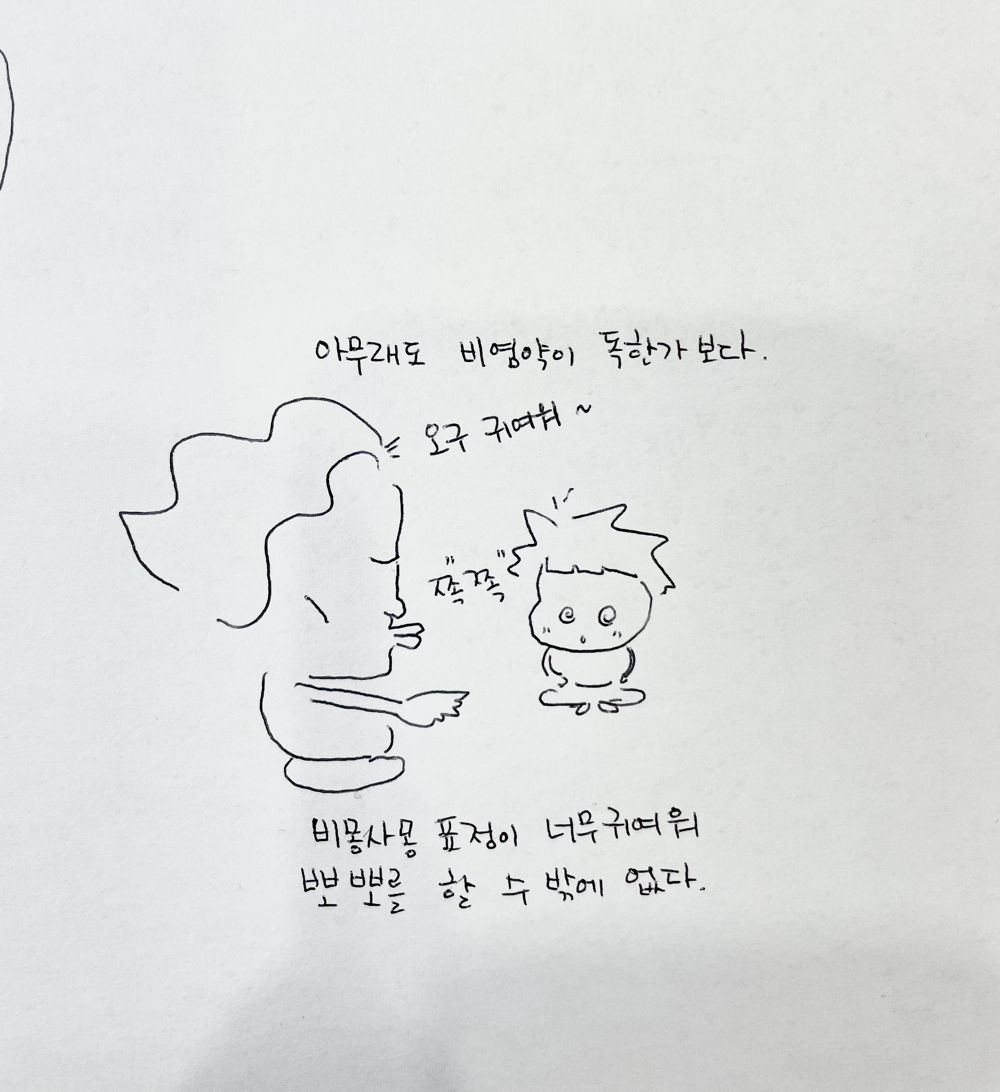 아무래도 비염약이 독한가 보다.
오구 귀여워~
"쪽쪽"
비몽사몽 표정이 너무 귀여워
뽀뽀를 할 수 밖에 없다.